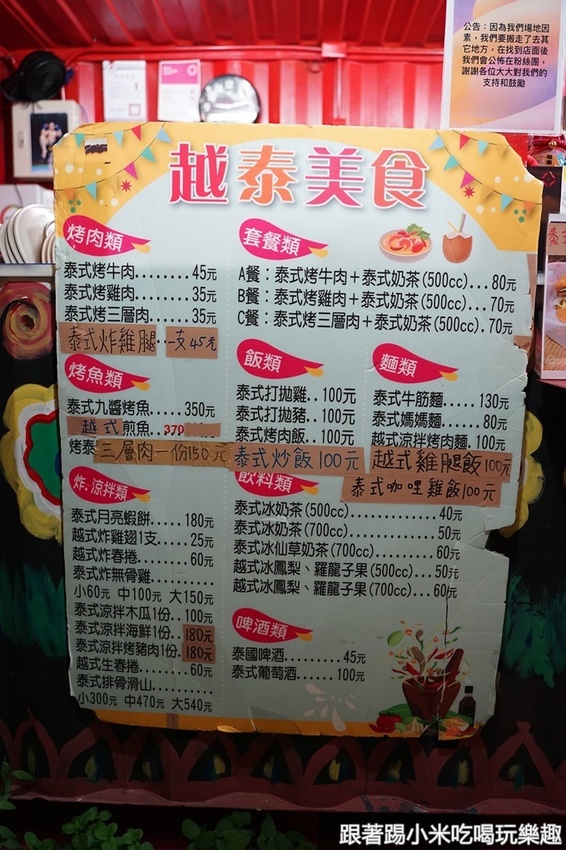 公告：因為我們場地因
素，我們要搬走了去其
它地方，在找到店面後
我們會公佈在粉絲團，
謝謝各位大大對我們的
支持和鼓勵
越泰美食
烤肉類
泰式烤牛肉.......45元
泰式烤雞肉.......35元
泰式烤三層肉.....35元
泰式炸雞腿..一支45元
烤魚類
泰式九醬烤魚.....350元
越式煎魚..370
烤泰三層肉一份150元
炸.涼拌類
泰式月亮蝦餅....180元
越式炸雞翅1支....25元
越式炸春捲.......60元
泰式炸無骨雞...........
小60元 中100元 大150元
泰式涼拌木瓜1份..100元
泰式涼拌海鮮1份..180元
泰式涼拌烤豬肉1份.180元
越式生春捲.......60元
泰式排骨滑山...........
小300元 中470元 大540元
套餐類
A餐：泰式烤牛肉＋泰式奶茶(500cc)...80元
B餐：泰式烤雞肉＋泰式奶茶(500cc)...70元
C餐：泰式烤三層肉＋泰式奶茶(500cc).70元
飯類
泰式打拋雞..100元
泰式打拋豬..100元
泰式烤肉飯..100元
泰式炒飯100元
麵類
泰式牛筋麵....130元
泰式媽媽麵.....80元
越式涼拌烤肉麵.100元
越式雞腿飯100元
泰式咖哩雞飯100元
飲料類
泰式冰奶茶(500cc)............40元
泰式冰奶茶(700cc)............50元
泰式冰仙草奶茶(700cc)........60元
越式冰鳳梨、羅龍子果(500cc)...50元
越式冰鳳梨、羅龍子果(700cc)...60元
啤酒類
泰國啤酒.......45元
泰式葡萄酒......100元
跟著踢小米吃喝玩樂趣